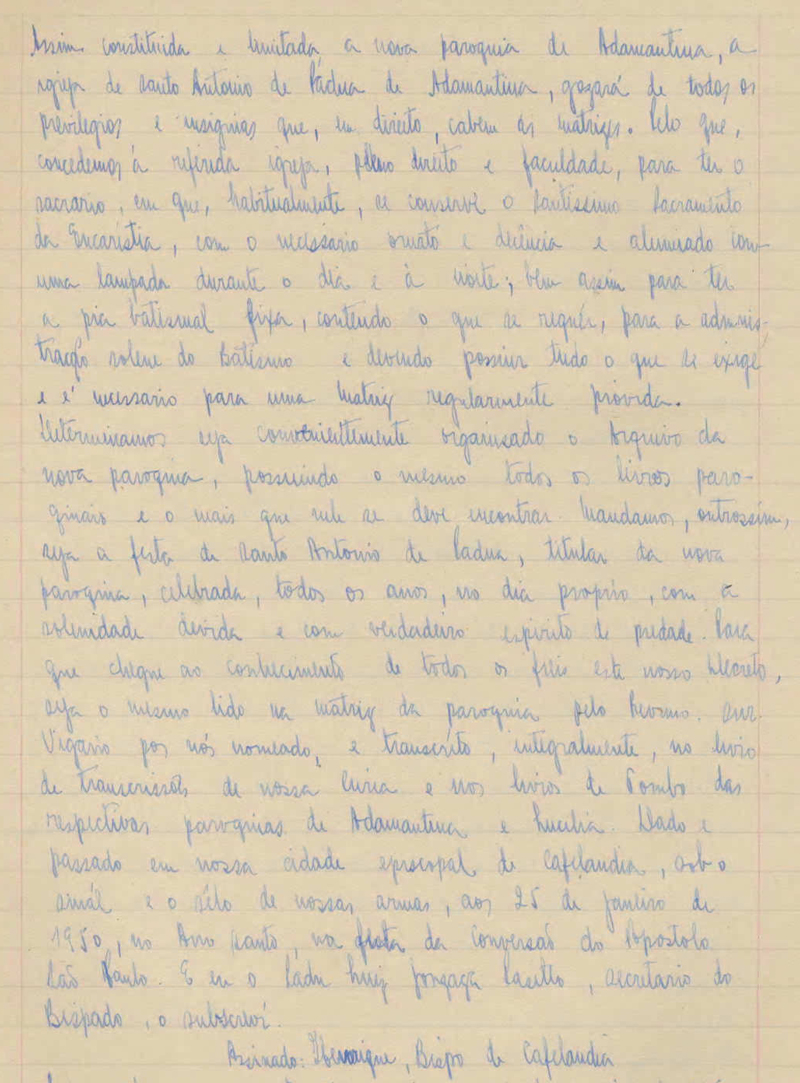 Assim constituida e limitada a nova paroquia de Adamantina, a
igreja de santo Antonio de Pádua de Adamantina, gozará de todos os
previlegios e insignias que, em direito, cabem ás matrizes. Pelo que,
concedemos á referida igreja, pleno direito e faculdade, para ter o
sacrario, em que, habitualmente, se conserve o Santissimo Sacramento
da Eucaristia, com o necessário ornato e decência e alumiado com
uma lampada durante o dia e á noite; bem assim para ter
a pia batismal fixa, contendo o que se requér, para a adminis-
tracção solene do Batismo e devendo possuir tudo o que se exige
e é necessario para uma Matriz regularmente provida.
Determinamos seja convenienttemente organisado o Arquivo da
nova paroquia, possuindo o mesmo todos os livros paro-
quiais e o mais que nele se deve encontrar. Mandamos, outrossim,
seja a festa de santo Antonio de Padua, titular da nova
paroquia, celebrada, todos os anos, no dia proprio, com a
solenidade devida e com verdadeiro espirito de piedade. Para
que chegue ao conhecimento de todos os fiéis este nosso Decreto,
seja o mesmo lido na matriz da paroquia pelo Revmo. snr.
Vigario por nós nomeado, e transcrito, integralmente, no livro
de transcrissões de nossa Curia e nos livros de Tombo das
respectivas paroquias de Adamantina e Lucelia. Dado e
passado em nossa cidade episcopal de Cafelandia, sob o
sinál e o sêlo de nossas armas, aos 25 de janeiro de
1950, no Ano santo, na festa da Conversão do Apostolo
São Paulo. E eu o Padre Luiz Gonzaga, secretario do
Bispado, o subscreví.
Assinado: Henrique, Bispo de Cafelandia